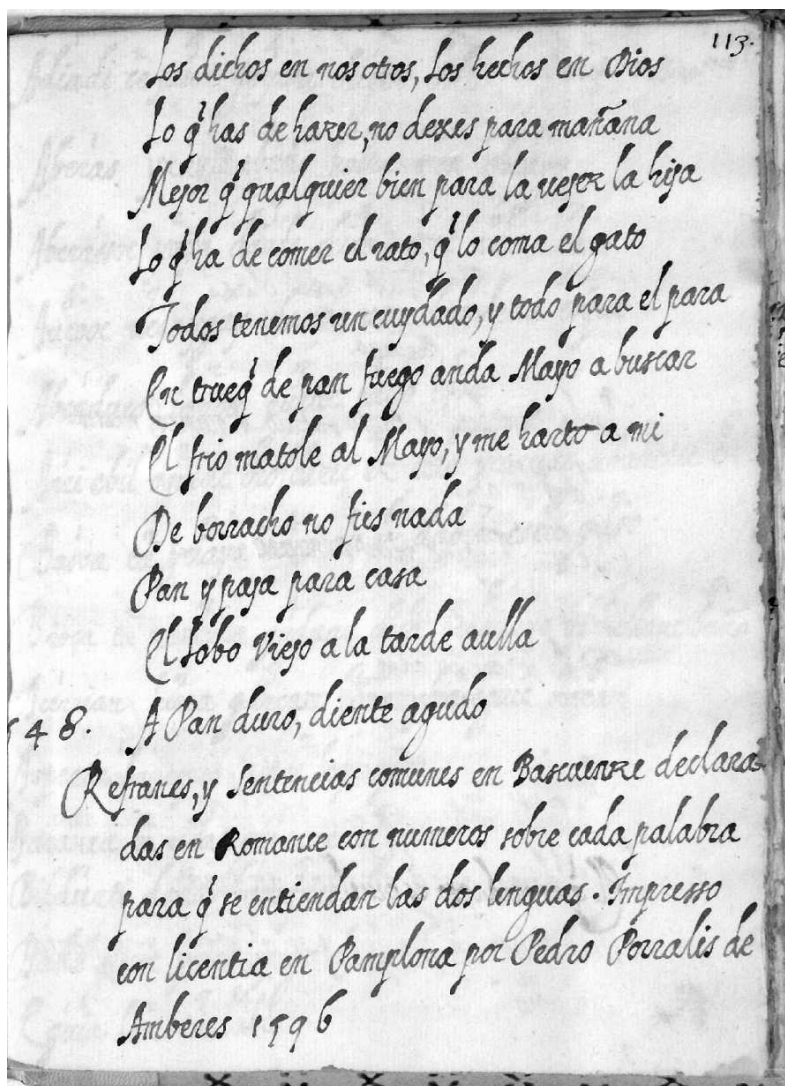 113.
Los dichos en nosotros, Los hechos en Dios
Lo q̃ has de hazer, no dexes para mañana
Mejor q̃ qualquier bien para la uejez la hija
Lo q̃ ha de comer el rato, q̃ lo coma el gato
Todos tenemos un cuydado, y todo para el para
En trueq̃ de pan fuego anda Mayo a buscar
El frio matole al Mayo, y me harto a mi
De borracho no fies nada
Pan y paja para casa
El Lobo viejo a la tarde aulla
548. A Pan duro, diente agudo
Refranes, y Sentencias comunes en Bascuenze declara
das en Romance con numeros sobre cada palabra
para q̃ se entiendan las dos lenguas. Impresso
con licentia en Pamplona por Pedro Porralis de
Amberes 1596